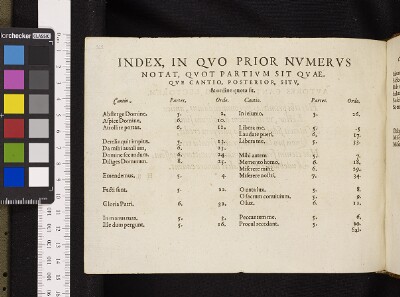 colorchecker CLASSIC
INDEX, IN QVO PRIOR NVMERVS
NOTAT, QVOT PARTIVM SIT QVAE.
QVE CANTIO, POSTERIOR, SITV,
& ordine quota sit.
Cantio. Partes. Ordo. Cantio. Partes. Ordo.
Absterge Domine. 5. 2. In ieiunio. 5. 26.
Aspice Domine. 6. 10.
Attollite portas. 6. 11. Libera me. 5. 5.
Laudate pueri, 6. 17.
Derelinquit impius. 5. 13. Libera me, 5. 33.
Da mihi auxilium, 6. 23.
Domine secundum. 6. 24. Mihi autem. 5. 7.
Diliges Dominum. 8. 25. Memento homo. 6. 18.
Miserere mihi. 6. 29.
Emendemus, 5. 4. Miserere nostri. 7. 34.
Facti sunt. 5. 12. O nata lux. 5. 8.
O sacrum conuiuium. 5. 9.
Gloria Patri. 6. 32. O lux. 6. 12.
In manus tuas. 5. 3. Peccantem me. 5. 6.
Ille dum pergunt. 5. 16. Procul recedant. 5.
Sal-